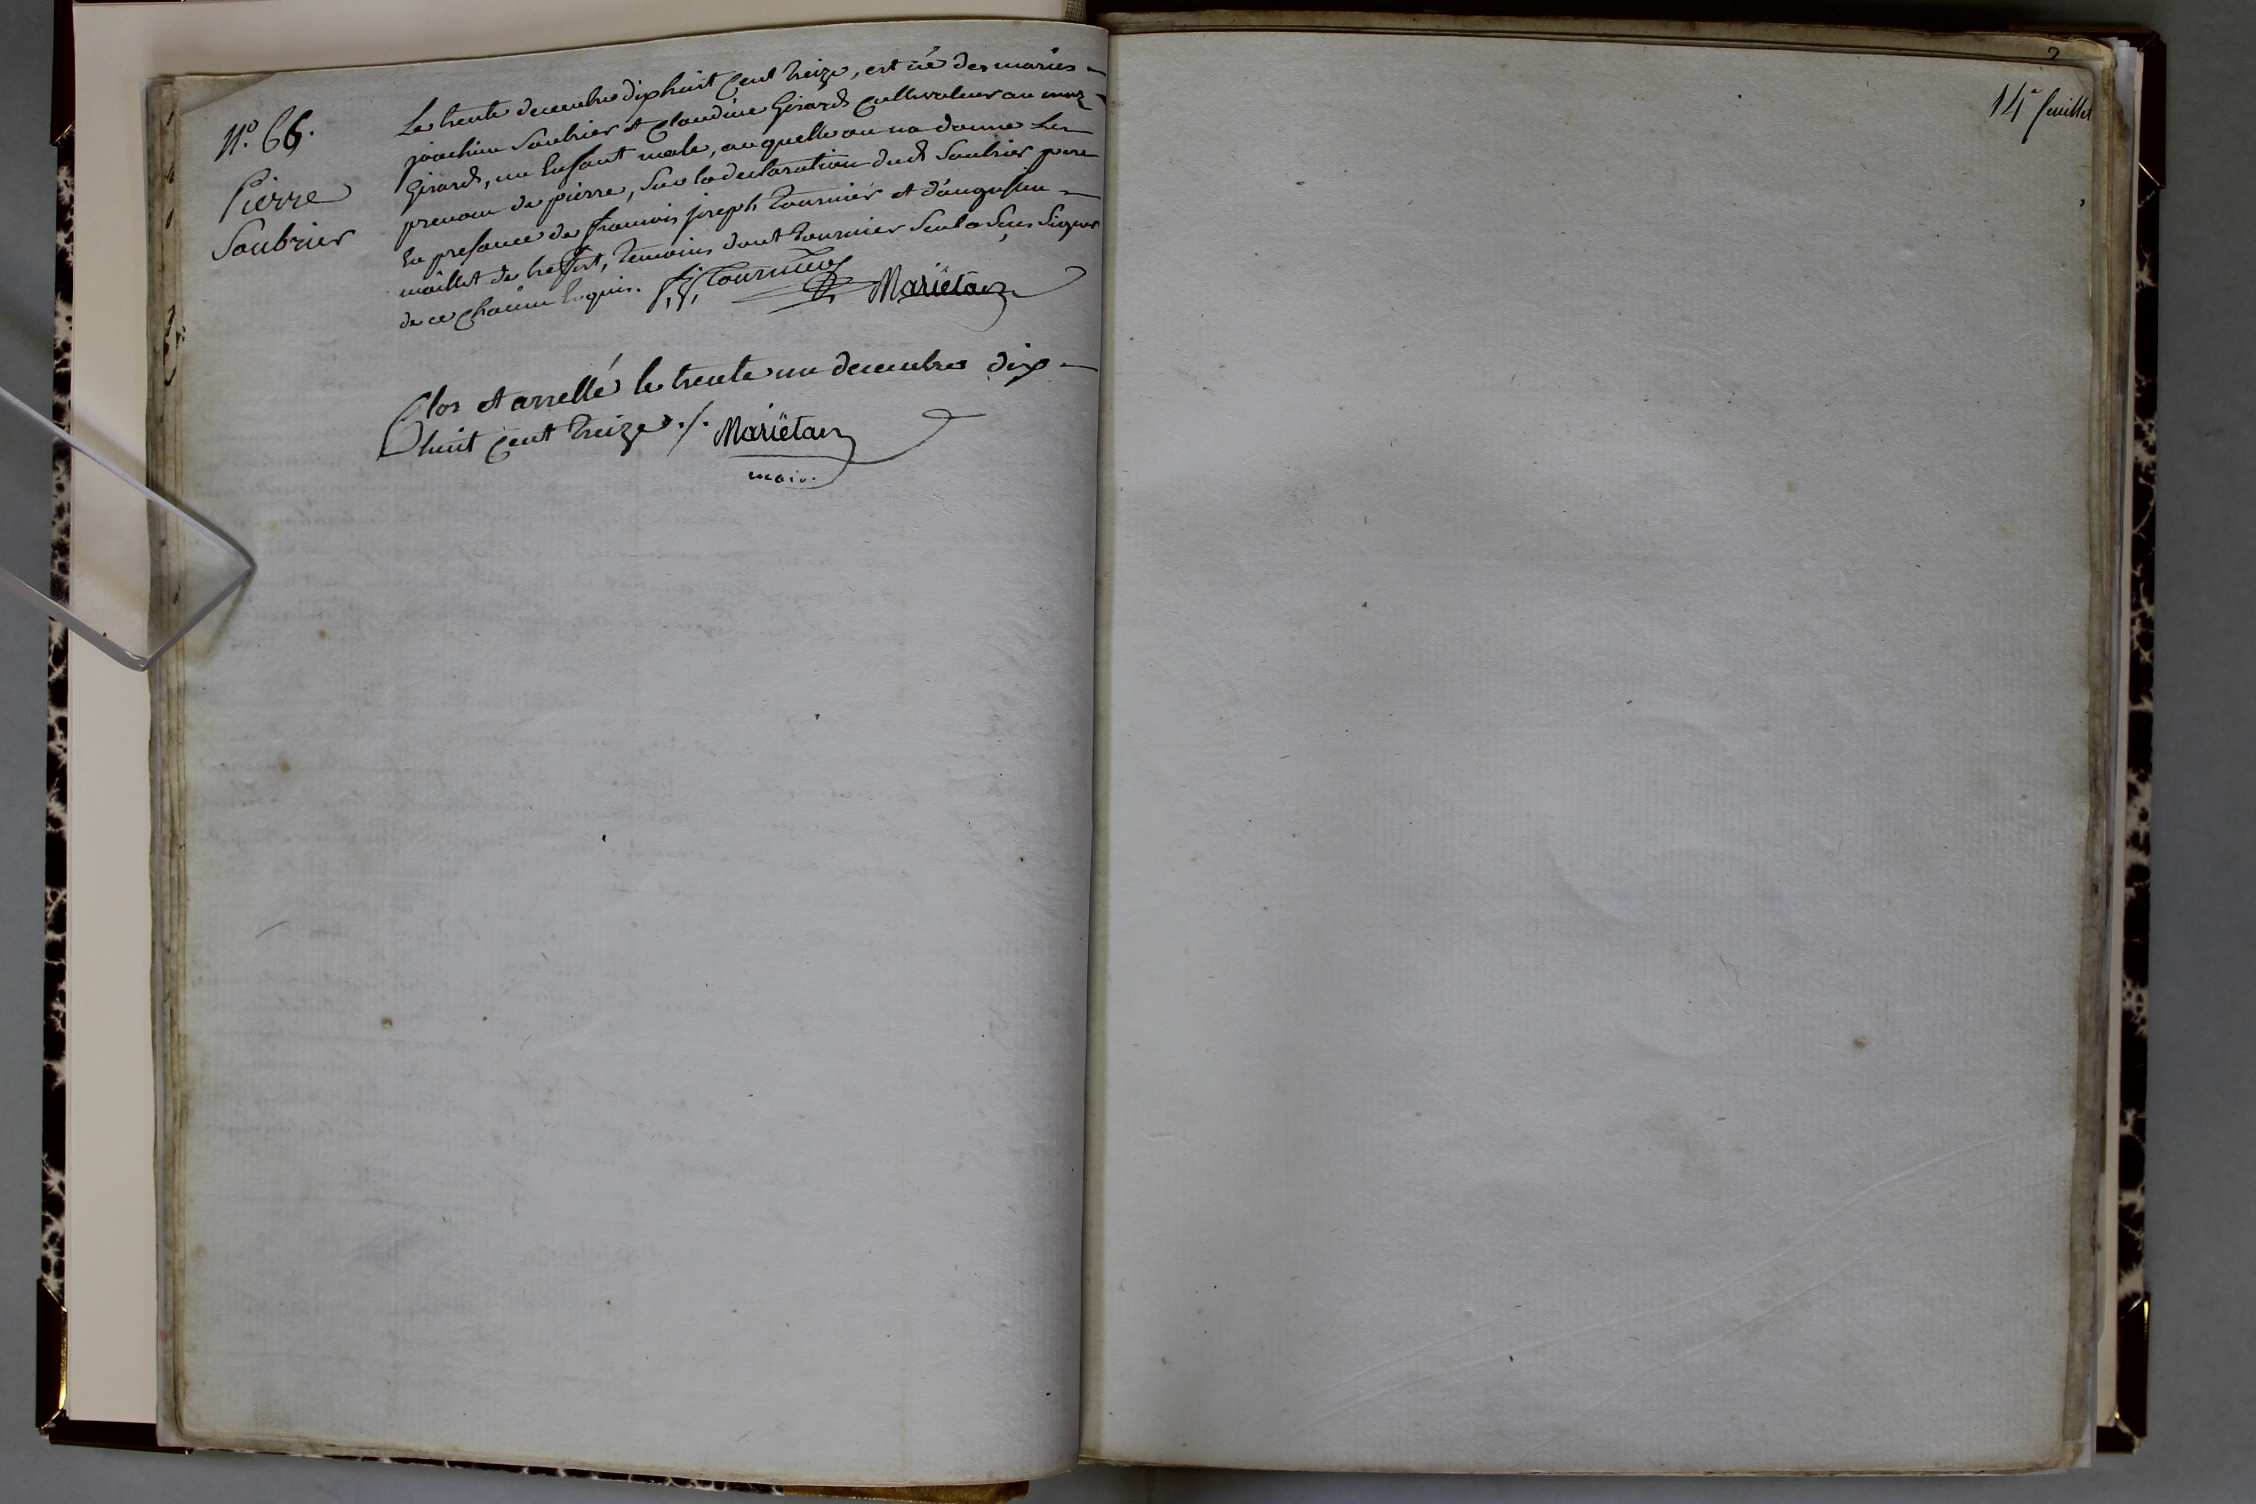 N.o 66.
Pierre
Soubrier
Le trente decembre dix huit Cent treize, est né des maries
joachim Soubrier et Claudine Girard Cultivateur au maz
Girard, un Enfant male, au quelle on na donne Le
prenom de pierre, Sur la declaration dud Soubrier pere
En presance de francois joseph tournier et d'augustin
maillet de treffort, temoins dont tournier Seul a Sçus Signer
de ce Enquis. f. j. Tournier Mariëtan
Clos et arretté le trente un decembre dix
huit Cent treize ./. Mariëtan
maire
14e feuillet